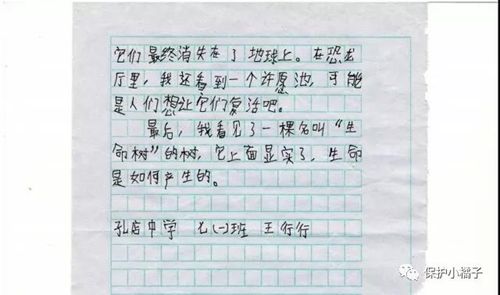 它们最终消失在了地球上。在恐龙
厅里，我还看到一个许愿池，可能
是人们想让它们复活吧。
最后，我看见了一棵名叫“生
命树”的树，它上面显实了，生命
是如何产生的。
孔店中学 七(一)班 王行行
保护小橘子